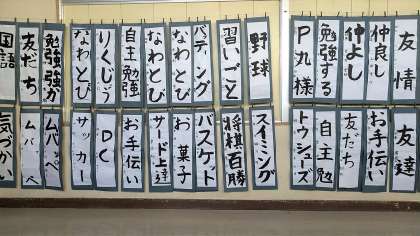 友情
仲良し
仲よし
勉強する
P丸様
野球
習いごと
バッティング
なわとび
なわとび
自主勉強
りくじょう
なわとび
友だち
国語
友達
お手伝い
友だち
自主勉
トウシューズ
スイミング
将棋百勝
バスケット
お菓子
サード上達
お手伝い
DC
サッカー
ムバッペ
ムバッペ
気づかい